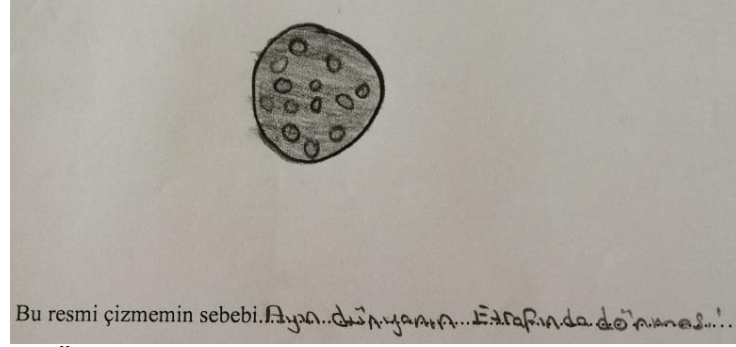 Bu resmi çizmemin sebebi.Ayın..dünyanın...Etrafında.dönmesi.